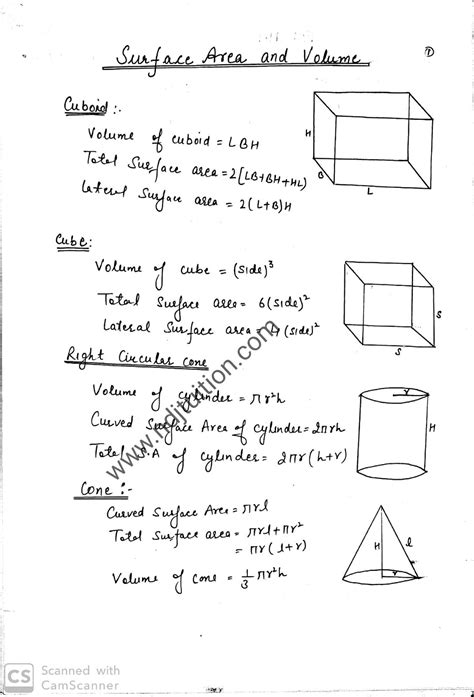 Surface Area and Volume
①
Cuboid :-
Volume of cuboid = LBH
Total Surface area = 2[LB+BH+HL]
lateral Surface area = 2(L+B)H
H
B
L
Cube:
Volume of cube = (side)³
Total Surface area = 6(side)²
Lateral Surface area = 4(side)²
S
S
Right Circular cone
Volume of cylinder = πr²h
Curved Surface Area of cylinder = 2πrh
Total S.A of cylinder = 2πr(h+r)
r
H
Cone :-
Curved Surface Area = πrl
Total Surface area = πrl+πr²
= πr(l+r)
Volume of cone = 1/3 πr²h
H
l
r
www.ndjtuition.com
CS
Scanned with
CamScanner